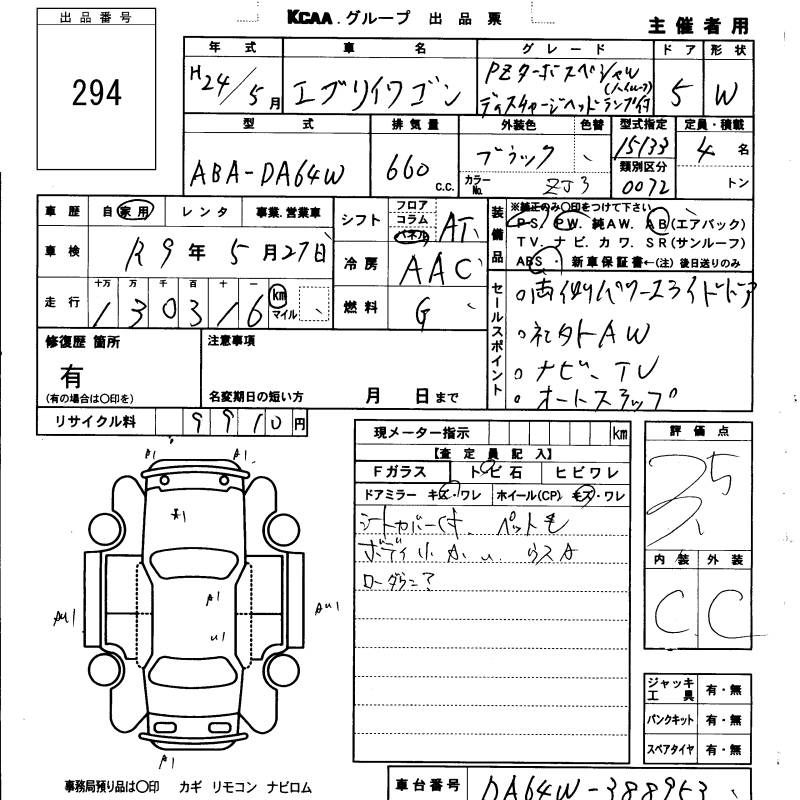 出品番号
294
KCAA.グループ 出品票
主催者用
年式 車名 グレード ドア 形状
H24/5月 エブリイワゴン PZターボスペシャル(ハイルーフ)
ディスチャージヘッドランプ付 5 W
型式 排気量 外装色 色替 型式指定 定員・積載
ABA-DA64W 660 c.c. ブラック 15133 4名
カラーNo. ZJ3 類別区分 0072 トン
車歴 自家用 レンタ 事業.営業車
車検 R9年5月27日
走行 十万 万 千 百 十 一
130316 km マイル
シフト フロア コラム パネル AT
冷房 AAC
燃料 G
装備品 ※純正のみ○印をつけて下さい
PS. PW. 純AW. AB(エアバック)
TV. ナビ. カワ. SR(サンルーフ)
ABS・新車保証書←(注)後日送りのみ
セールスポイント
○両側パワースライドドア
○社外AW
○ナビ、TV
○オートステップ
修復歴 箇所
有
(有の場合は○印を)
注意事項
名変期日の短い方 月 日まで
リサイクル料 9910円
現メーター指示 km
【査定員記入】
Fガラス トビ石 ヒビワレ
ドアミラー キズ・ワレ ホイール(CP) キズ・ワレ
シートカバーくす、ペット毛
ボディ小A.U. ウスA
ローダウン?
評価点
3.5
内装 外装
C C
A1 A1 A1
☆1
A1
U1
AU1 AU1
A1
ジャッキ工具 有・無
パンクキット 有・無
スペアタイヤ 有・無
事務局預り品は○印 カギ リモコン ナビロム
車台番号 DA64W-388953